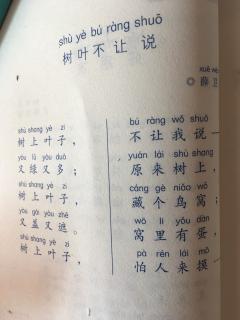 shù yè bú ràng shuō
树叶不让说
xuē wèi
◎薛卫
shù shang yè zi
树上叶子，
yòu lǜ yòu duō
又绿又多；
shù shang yè zi
树上叶子，
yòu gài yòu zhē
又盖又遮。
shù shang yè zi
树上叶子，
bú ràng wǒ shuō
不让我说—
yuán lái shù shang
原来树上，
cáng gè niǎo wō
藏个鸟窝；
wō li yǒu dàn
窝里有蛋，
pà rén lái mō
怕人来摸